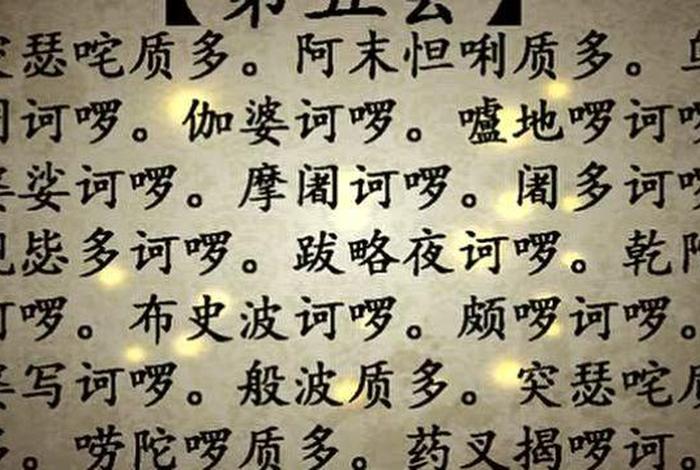 【第五会】
瑟咤质多。阿末怛唎质多。
诃啰。伽婆诃啰。嚧地啰诃
娑诃啰。摩阇诃啰。阇多诃
毖多诃啰。跋略夜诃啰。乾
啰。布史波诃啰。颇啰诃啰。
写诃啰。般波质多。突瑟咤
。唠陀啰质多。药叉揭啰诃。